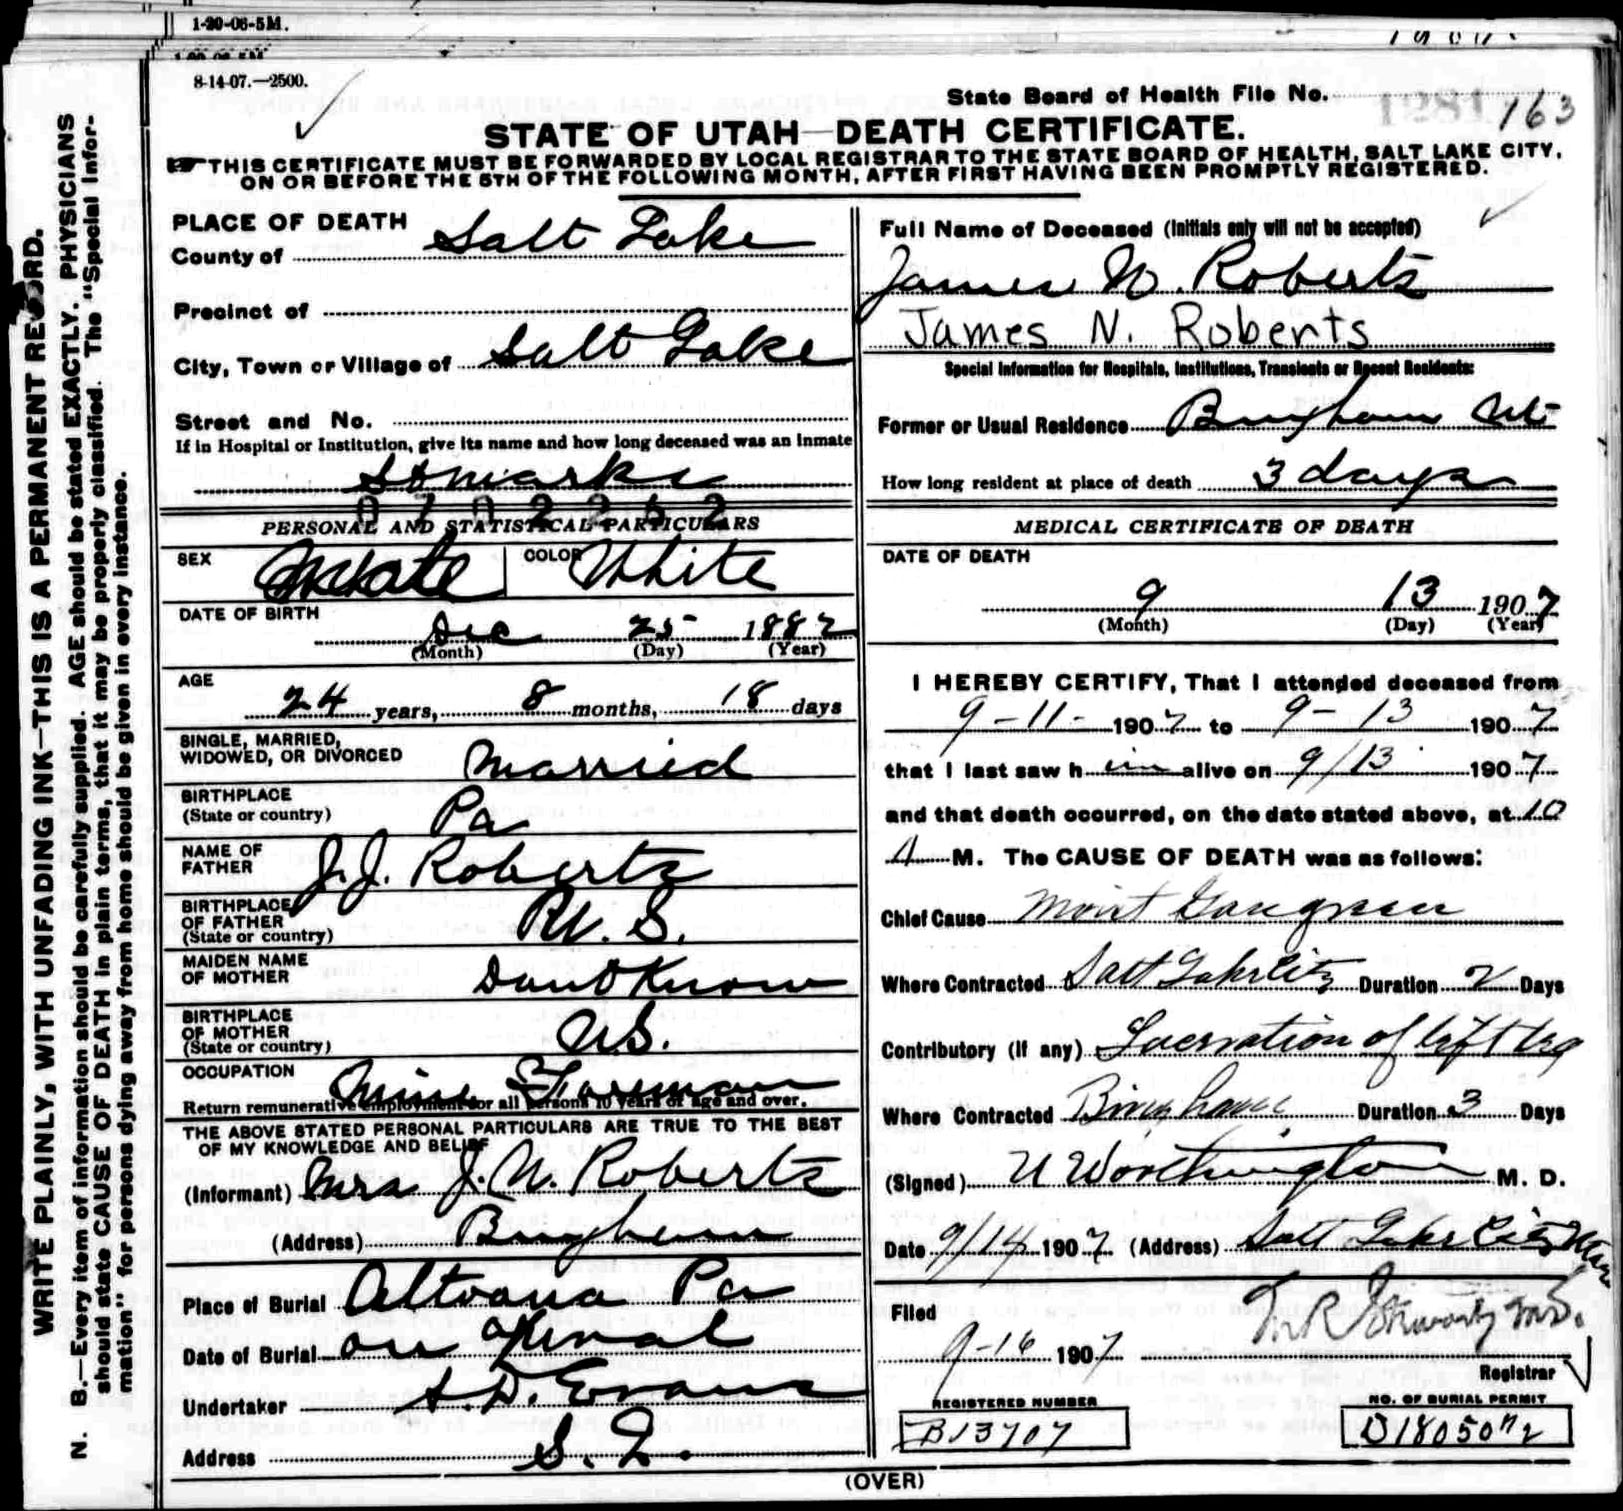 1-20-06-5M.
8-14-07.—2500.
State Board of Health File No. 163
STATE OF UTAH—DEATH CERTIFICATE.
THIS CERTIFICATE MUST BE FORWARDED BY LOCAL REGISTRAR TO THE STATE BOARD OF HEALTH, SALT LAKE CITY,
ON OR BEFORE THE 5TH OF THE FOLLOWING MONTH, AFTER FIRST HAVING BEEN PROMPTLY REGISTERED.
WRITE PLAINLY, WITH UNFADING INK—THIS IS A PERMANENT RECORD.
N. B.—Every item of information should be carefully supplied. AGE should be stated EXACTLY. PHYSICIANS
should state CAUSE OF DEATH in plain terms, that it may be properly classified. The "Special Infor-
mation" for persons dying away from home should be given in every instance.
PLACE OF DEATH
County of Salt Lake
Precinct of
City, Town or Village of Salt Lake
Street and No.
If in Hospital or Institution, give its name and how long deceased was an Inmate
St Marks
0702252
PERSONAL AND STATISTICAL PARTICULARS
SEX Male COLOR White
DATE OF BIRTH
Dec 25 1882
(Month) (Day) (Year)
AGE
24 years, 8 months, 18 days
SINGLE, MARRIED,
WIDOWED, OR DIVORCED Married
BIRTHPLACE
(State or country) Pa
NAME OF
FATHER J. J. Roberts
BIRTHPLACE
OF FATHER
(State or country) U. S.
MAIDEN NAME
OF MOTHER Dont Know
BIRTHPLACE
OF MOTHER
(State or country) U.S.
OCCUPATION Mine Foreman
Return remunerative employment for all persons 10 years of age and over.
THE ABOVE STATED PERSONAL PARTICULARS ARE TRUE TO THE BEST
OF MY KNOWLEDGE AND BELIEF
(Informant) Mrs J. N. Roberts
(Address) Bingham
Place of Burial Altoona Pa
Date of Burial on arival
Undertaker S. D. Evans
Address S. L.
Full Name of Deceased (Initials only will not be accepted)
James N. Roberts
James N. Roberts
Special Information for Hospitals, Institutions, Transients or Recent Residents:
Former or Usual Residence Bingham Ut
How long resident at place of death 3 days
MEDICAL CERTIFICATE OF DEATH
DATE OF DEATH
9 13 1907
(Month) (Day) (Year)
I HEREBY CERTIFY, That I attended deceased from
9-11- 1907 to 9-13 1907
that I last saw him alive on 9/13 1907
and that death occurred, on the date stated above, at 10
A M. The CAUSE OF DEATH was as follows:
Chief Cause Moist Gangreen
Where Contracted Salt Lake City Duration 2 Days
Contributory (If any) Laceration of left leg
Where Contracted Bingham Duration 3 Days
(Signed) U Worthington M. D.
Date 9/14 1907 (Address) Salt Lake City Utah
Filed
9-16 1907
Registrar
REGISTERED NUMBER NO. OF BURIAL PERMIT
B13707
(OVER)